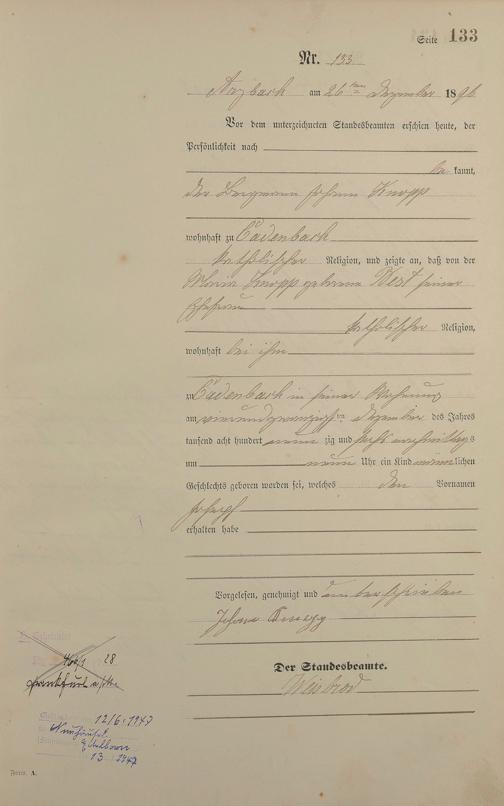 Seite 133
Nr. 133
Arzbach am 26ten Dezember 1896
Vor dem unterzeichneten Standesbeamten erschien heute, der
Persönlichkeit nach
be kannt,
der Bergmann Johann Knopp
wohnhaft zu Cadenbach
katholischer Religion, und zeigte an, daß von der
Maria Knopp geborene Best seiner
Ehefrau
katholischer Religion,
wohnhaft bei ihm
zu Cadenbach in seiner Wohnung
am vierundzwanzigsten Dezember des Jahres
tausend acht hundert neun zig und sechs vormittags
um neun Uhr ein Kind männlichen
Geschlechts geboren worden sei, welches den Vornamen
Joseph
erhalten habe
Vorgelesen, genehmigt und unterschrieben
Johann Knopp
Der Standesbeamte.
Weisbrod
28
Frankfurt a/M
12/6. 1947
13 1947
Form. A.